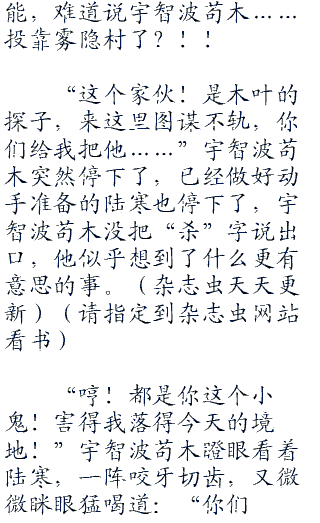 能，难道说宇智波苟木……
投靠雾隐村了？！！
“这个家伙！是木叶的
探子，来这里图谋不轨，你
们给我把他……”宇智波苟
木突然停下了，已经做好动
手准备的陆寒也停下了，宇
智波苟木没把“杀”字说出
口，他似乎想到了什么更有
意思的事。（杂志虫天天更
新）（请指定到杂志虫网站
看书）
“哼！都是你这个小
鬼！害得我落得今天的境
地！”宇智波苟木瞪眼看着
陆寒，一阵咬牙切齿，又微
微眯眼猛喝道：“你们